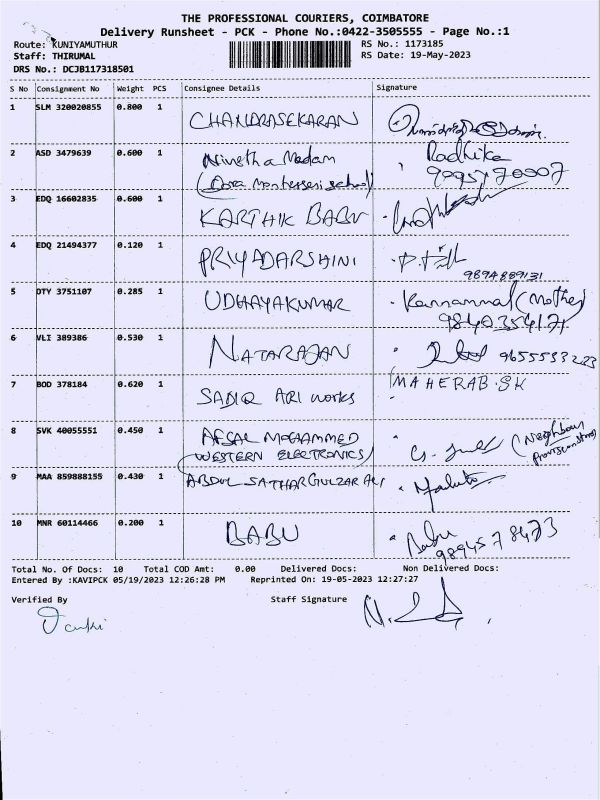 THE PROFESSIONAL COURIERS, COIMBATORE
Delivery Runsheet - PCK - Phone No.:0422-3505555 - Page No.:1
Route: KUNIYAMUTHUR
RS No.: 1173185
Staff: THIRUMAL
RS Date: 19-May-2023
DRS No.: DCJB117318501
S No Consignment No Weight PCS Consignee Details Signature
1 SLM 320020855 0.800 1 CHANDRASEKARAN
2 ASD 3479639 0.600 1 Nivetha Madam Radhika
(Dora Montessori school)
3 EDQ 16602835 0.600 1 KARTHIK BABU
4 EDQ 21494377 0.120 1 PRIYADARSHINI
9894889131
5 DTY 3751107 0.285 1 UDHAYAKUMAR Kannammal (Mother)
6 VLI 389386 0.530 1 NATARAJAN 9655533223
7 BOD 378184 0.620 1 SADIQ ARI works MAHERAB.SK
8 SVK 40055551 0.450 1 AFSAL MOHAMMED (Neighbour
(WESTERN ELECTRONICS)
9 MAA 859888155 0.430 1 ABDUL SATHAR GULZAR ALI
10 MNR 60114466 0.200 1 BABU Babu
9894578473
Total No. Of Docs: 10 Total COD Amt: 0.00 Delivered Docs: Non Delivered Docs:
Entered By :KAVIPCK 05/19/2023 12:26:28 PM Reprinted On: 19-05-2023 12:27:27
Verified By Staff Signature